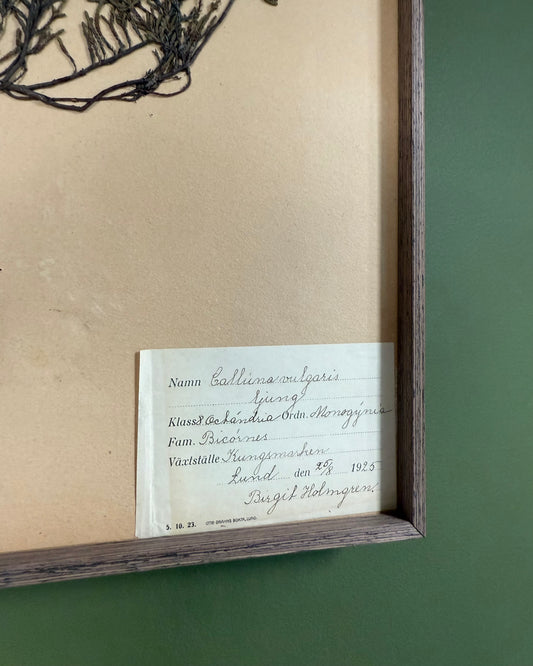 Namn Callúna vulgaris
ljung
Klass 8 Octándria Ordn. Monogýnia
Fam. Bicórnes
Växtställe Kungsmarken
Lund den 25/8 1925
Birgit Holmgren.
5. 10. 23.